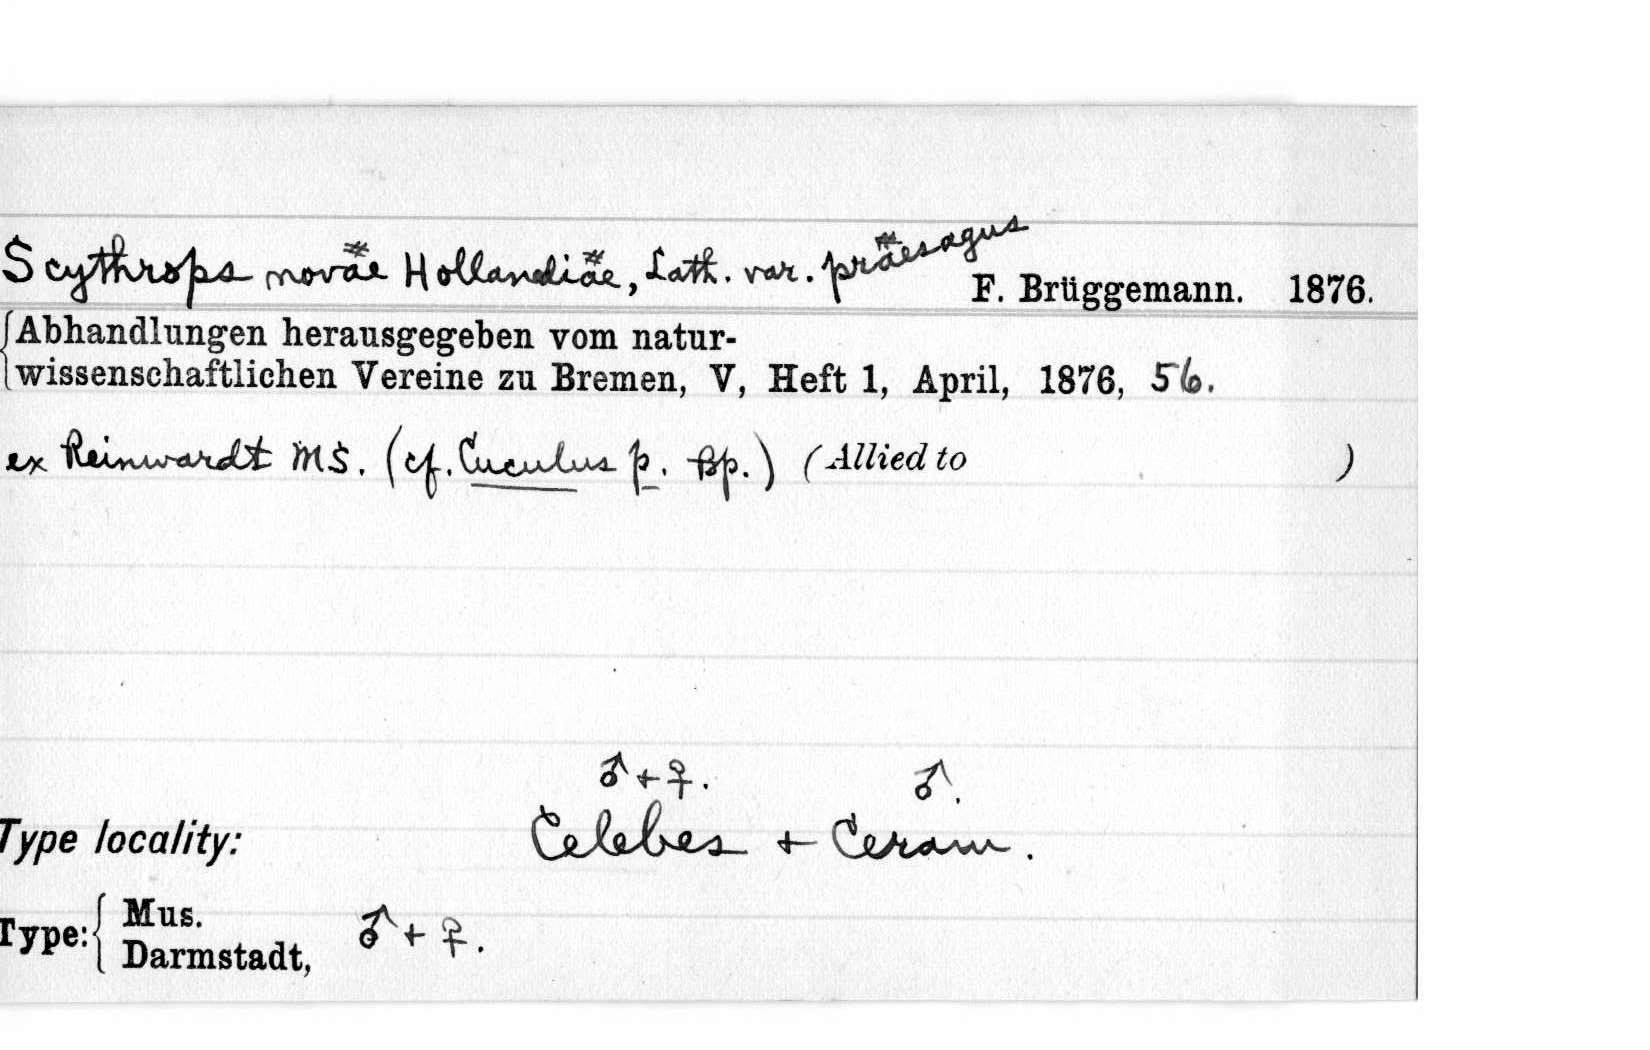 Scythrops novæ Hollandiæ, Lath. var. præsagus
F. Brüggemann. 1876.
Abhandlungen herausgegeben vom natur-
wissenschaftlichen Vereine zu Bremen, V, Heft 1, April, 1876, 56.
ex Reinwardt MS. (cf. Cuculus p. Bp.) (Allied to )
♂ + ♀. ♂.
Type locality: Celebes + Ceram.
Type: Mus.
Darmstadt, ♂ + ♀.